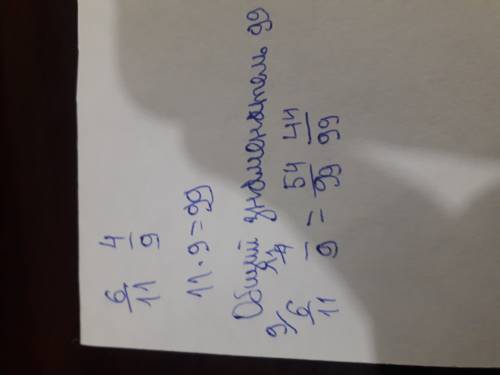 6/11 4/9
11 · 9 = 99
Общий знаменатель 99
9/ 6/11 4/9 = 54/99 44/99